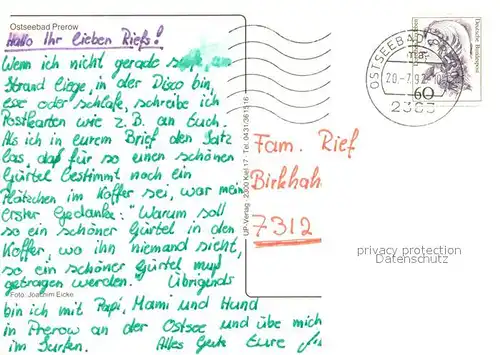 Ostseebad Prerow
Hallo Ihr lieben Riefs!
Wenn ich nicht gerade am
Strand liege, in der Disco bin,
esse oder schlafe, schreibe ich
Postkarten wie z.B. an Euch.
Als ich in eurem Brief den Satz
las, daß für so einen schönen
Gürtel bestimmt noch ein
Plätzchen im Koffer sei, war mein
erster Gedanke: "Warum soll
so ein schöner Gürtel in den
Koffer, wo ihn niemand sieht,
so ein schöner Gürtel muß
getragen werden. Übrigends
Foto: Joachim Eicke
bin ich mit Papi, Mami und Hund
in Prerow an der Ostsee und übe mich
im Surfen. Alles Gute Eure
UP-Verlag · 2300 Kiel 17 · Tel. 0431/361516
OSTSEEBAD PREROW
20.-7.92
2383
60
Deutsche Bundespost
Fam. Rief
Birkhah
7312
privacy protection
Datenschutz